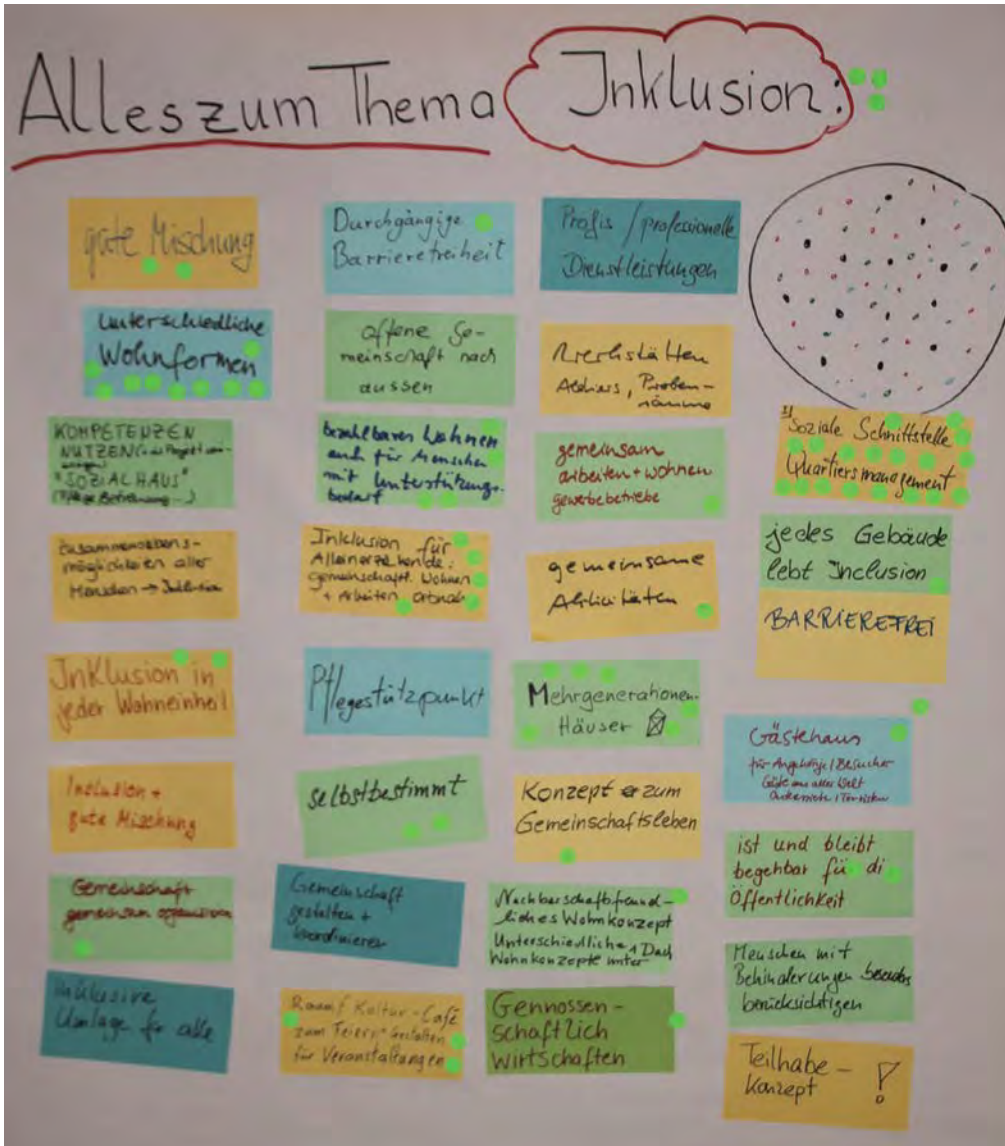 Alles zum Thema Inklusion:
gute Mischung
Unterschiedliche
Wohnformen
KOMPETENZEN
NUTZEN
"SOZIALHAUS"
möglichkeiten aller
Menschen → Inklusion
Inklusion in
jeder Wohneinheit
Inclusion +
gute Mischung
Gemeinschaft
gemeinsam organisieren
inklusive
Umlage für alle
Durchgängige
Barrierefreiheit
offene Ge-
meinschaft nach
aussen
bezahlbares Wohnen
auch für Menschen
mit Unterstützungs-
bedarf
Inklusion für
Alleinerziehende:
gemeinschaftl. Wohnen
+ Arbeiten ortsnah
Pflegestützpunkt
selbstbestimmt
Gemeinschaft
gestalten +
koordinieren
Raum f Kultur-Café
zum Feiern Gestalten
für Veranstaltungen
Profis / professionelle
Dienstleistungen
Werkstätten
Ateliers, Proben-
räume
gemeinsam
arbeiten + wohnen
gewerbebetriebe
gemeinsame
Aktivitäten
Mehrgenerationen-
Häuser
Konzept zum
Gemeinschaftsleben
Nachbarschaftfreund-
liches Wohnkonzept
Unterschiedliche
Wohnkonzepte unter 1 Dach
Gennossen-
schaftlich
wirtschaften
Soziale Schnittstelle
Quartiersmanagement
jedes Gebäude
lebt Inclusion
BARRIEREFREI
Gästehaus
für Angehörige / Besucher
Gäste aus aller Welt
ist und bleibt
begehbar für di
Öffentlichkeit
Menschen mit
Behinderungen besonders
berücksichtigen
Teilhabe-
Konzept !